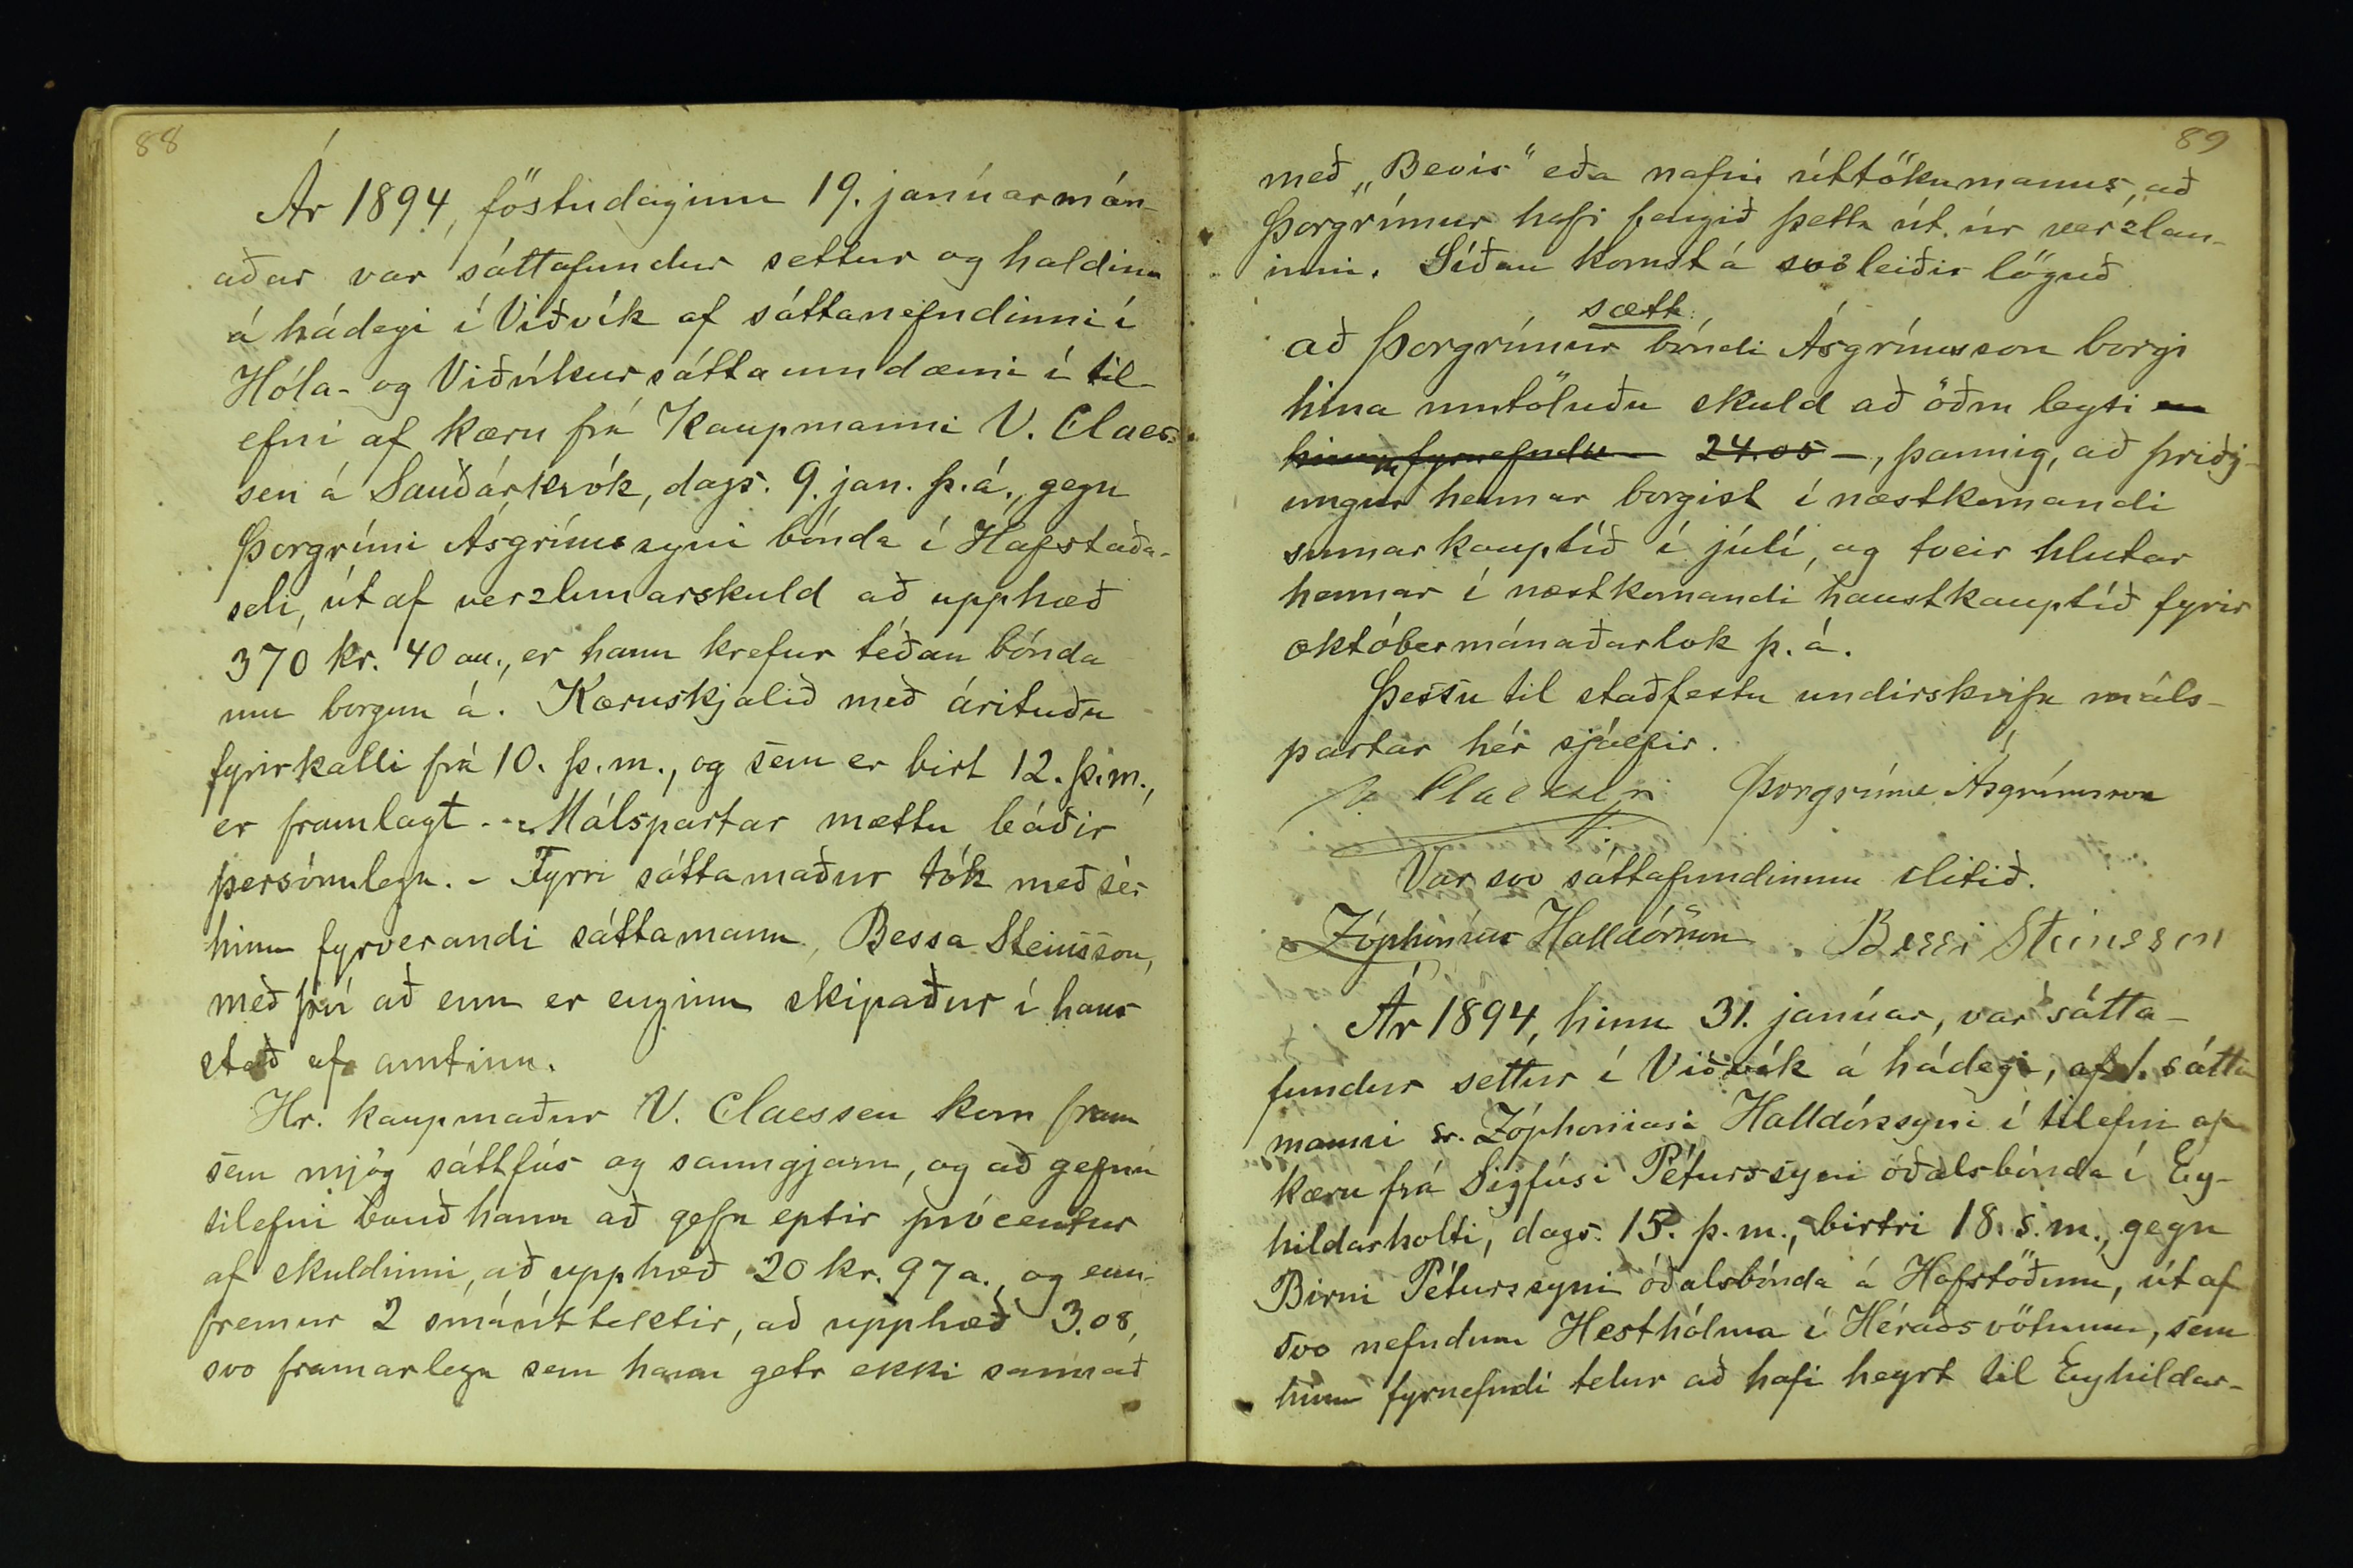 88
Ár 1894, föstudaginn 19. janúarmán-
aðar var sáttafundur settur og haldinn
á hádegi í Viðvík af sáttanefndinni í
Hóla- og Viðvíkursáttaumdæmi í til-
efni af kæru frá Kaupmanni V. Claes-
sen á Sauðárkrók, dags. 9. jan. þ.á., gegn
Þorgrími Ásgrímssyni bónda í Hofstaða-
seli, út af verzlunarskuld að upphæð
370 kr. 40 au., er hann krefur téðan bónda
um borgun á. Kæruskjalið með árituðu
fyrirkalli frá 10. þ.m., og sem er birt 12. þ.m.,
er framlagt. - Málspartar mættu báðir
persónulega. - Fyrri sáttamaður tók með sér
hinn fyrverandi sáttamann, Bessa Steinsson,
með því að enn er enginn skipaður í hans
stað af amtinu.
Hr. kaupmaður V. Claessen kom fram
sem mjög sáttfús og sanngjarn, og að gefnu
tilefni bauð hann að gefa eptir prócentur
af skuldinni, að upphæð 20 kr. 97 a., og enn-
fremur 2 smáúttektir, að upphæð 3.08,
svo framarlega sem hann getr ekki sannað
89
með „Bevis" eða nafni úttökumanns, að
Þorgrímur hafi fengið þetta út úr verzlan-
inni. Síðan komst á svoleiðis löguð
sætt:
að Þorgrímur bóndi Ásgrímsson borgi
hina umtöluðu skuld að öðru leyti en
hinum fyrnefndu - 24.05 -, þannig, að þriðj-
ungur hennar borgist í næstkomandi
sumarkauptíð í júlí, og tveir hlutar
hennar í næstkomandi haustkauptíð fyrir
októbermánaðarlok þ. á.
Þessu til staðfestu undirskrifa máls-
partar hér sjáefir.
V. Claessen Þorgrímur Ásgrímsson
Var svo sáttafundinum slitið.
Zóphónías Halldórsson Bessi Steinsson
Ár 1894, hinn 31. janúar, var sátta-
fundur settur í Viðvík á hádegi, af 1. sátta
manni sr. Zóphoníasi Halldórssyni í tilefni af
kæru frá Sigfúsi Péturssyni óðalsbónda í Ey-
hildarholti, dags. 15. þ. m., birtri 18. s.m., gegn
Birni Péturssyni óðalsbónda á Hofstöðum, út af
svo nefndum Hesthólma í Héraðsvötnum, sem
hinn fyrnefndi telur að hafi heyrt til Eyhildar-